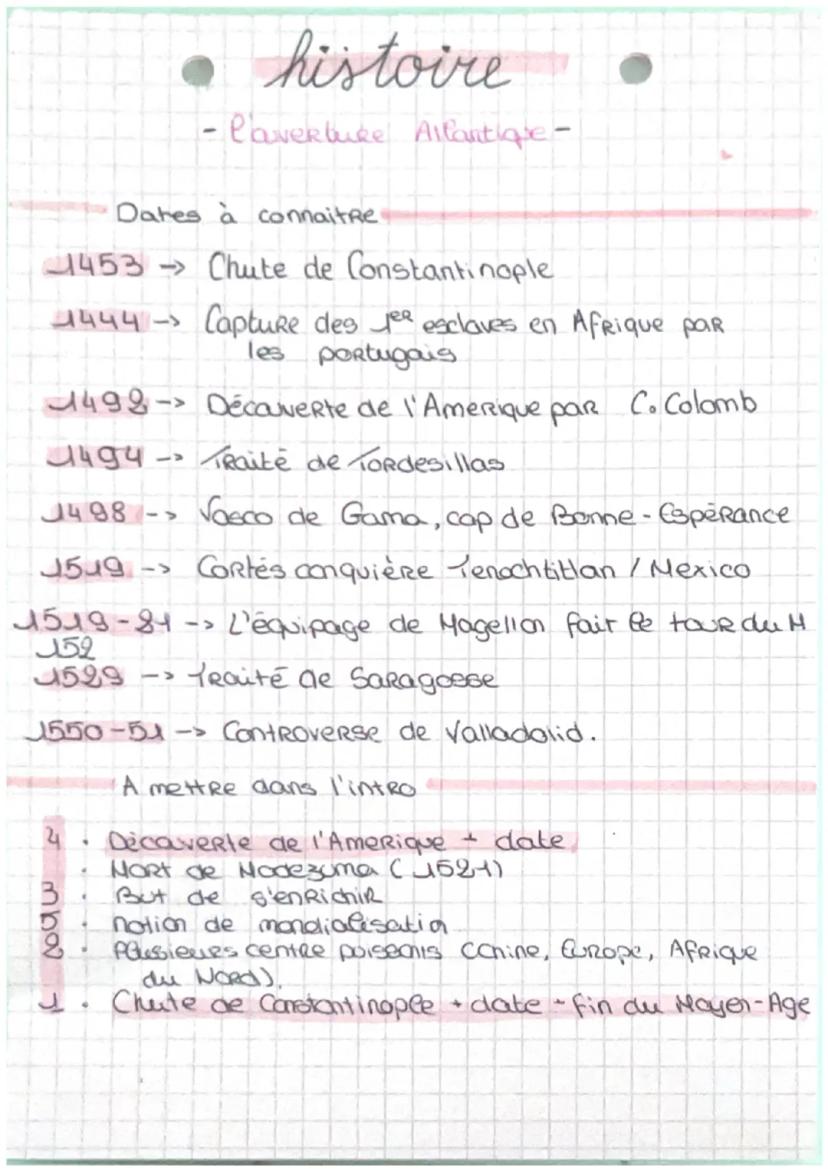 histoire
- l'ouverture Atlantique -
Dates à connaitre
1453 -> Chute de Constantinople
1444 -> Capture des 1er esclaves en Afrique par
les portugais
1492 -> Découverte de l'Amerique par C. Colomb
1494 -> Traité de Tordesillas
1498 -> Vasco de Gama, cap de Bonne-Espérance
1519 -> Cortés conquière Tenochtitlan / Mexico
1519-21 -> L'équipage de Magellan fait le tour du M
152
1529 -> Traité de Saragosse
1550-51 -> Controverse de Valladolid.
A mettre dans l'intro
4 . Découverte de l'Amerique + date
. Mort de Moctezuma (1521)
3 . But de s'enrichir
5 . notion de mondialisation
2 . Plusieurs centre puissants (Chine, Europe, Afrique
du Nord).
1 . Chute de Constantinople + date - fin du Moyen-Age